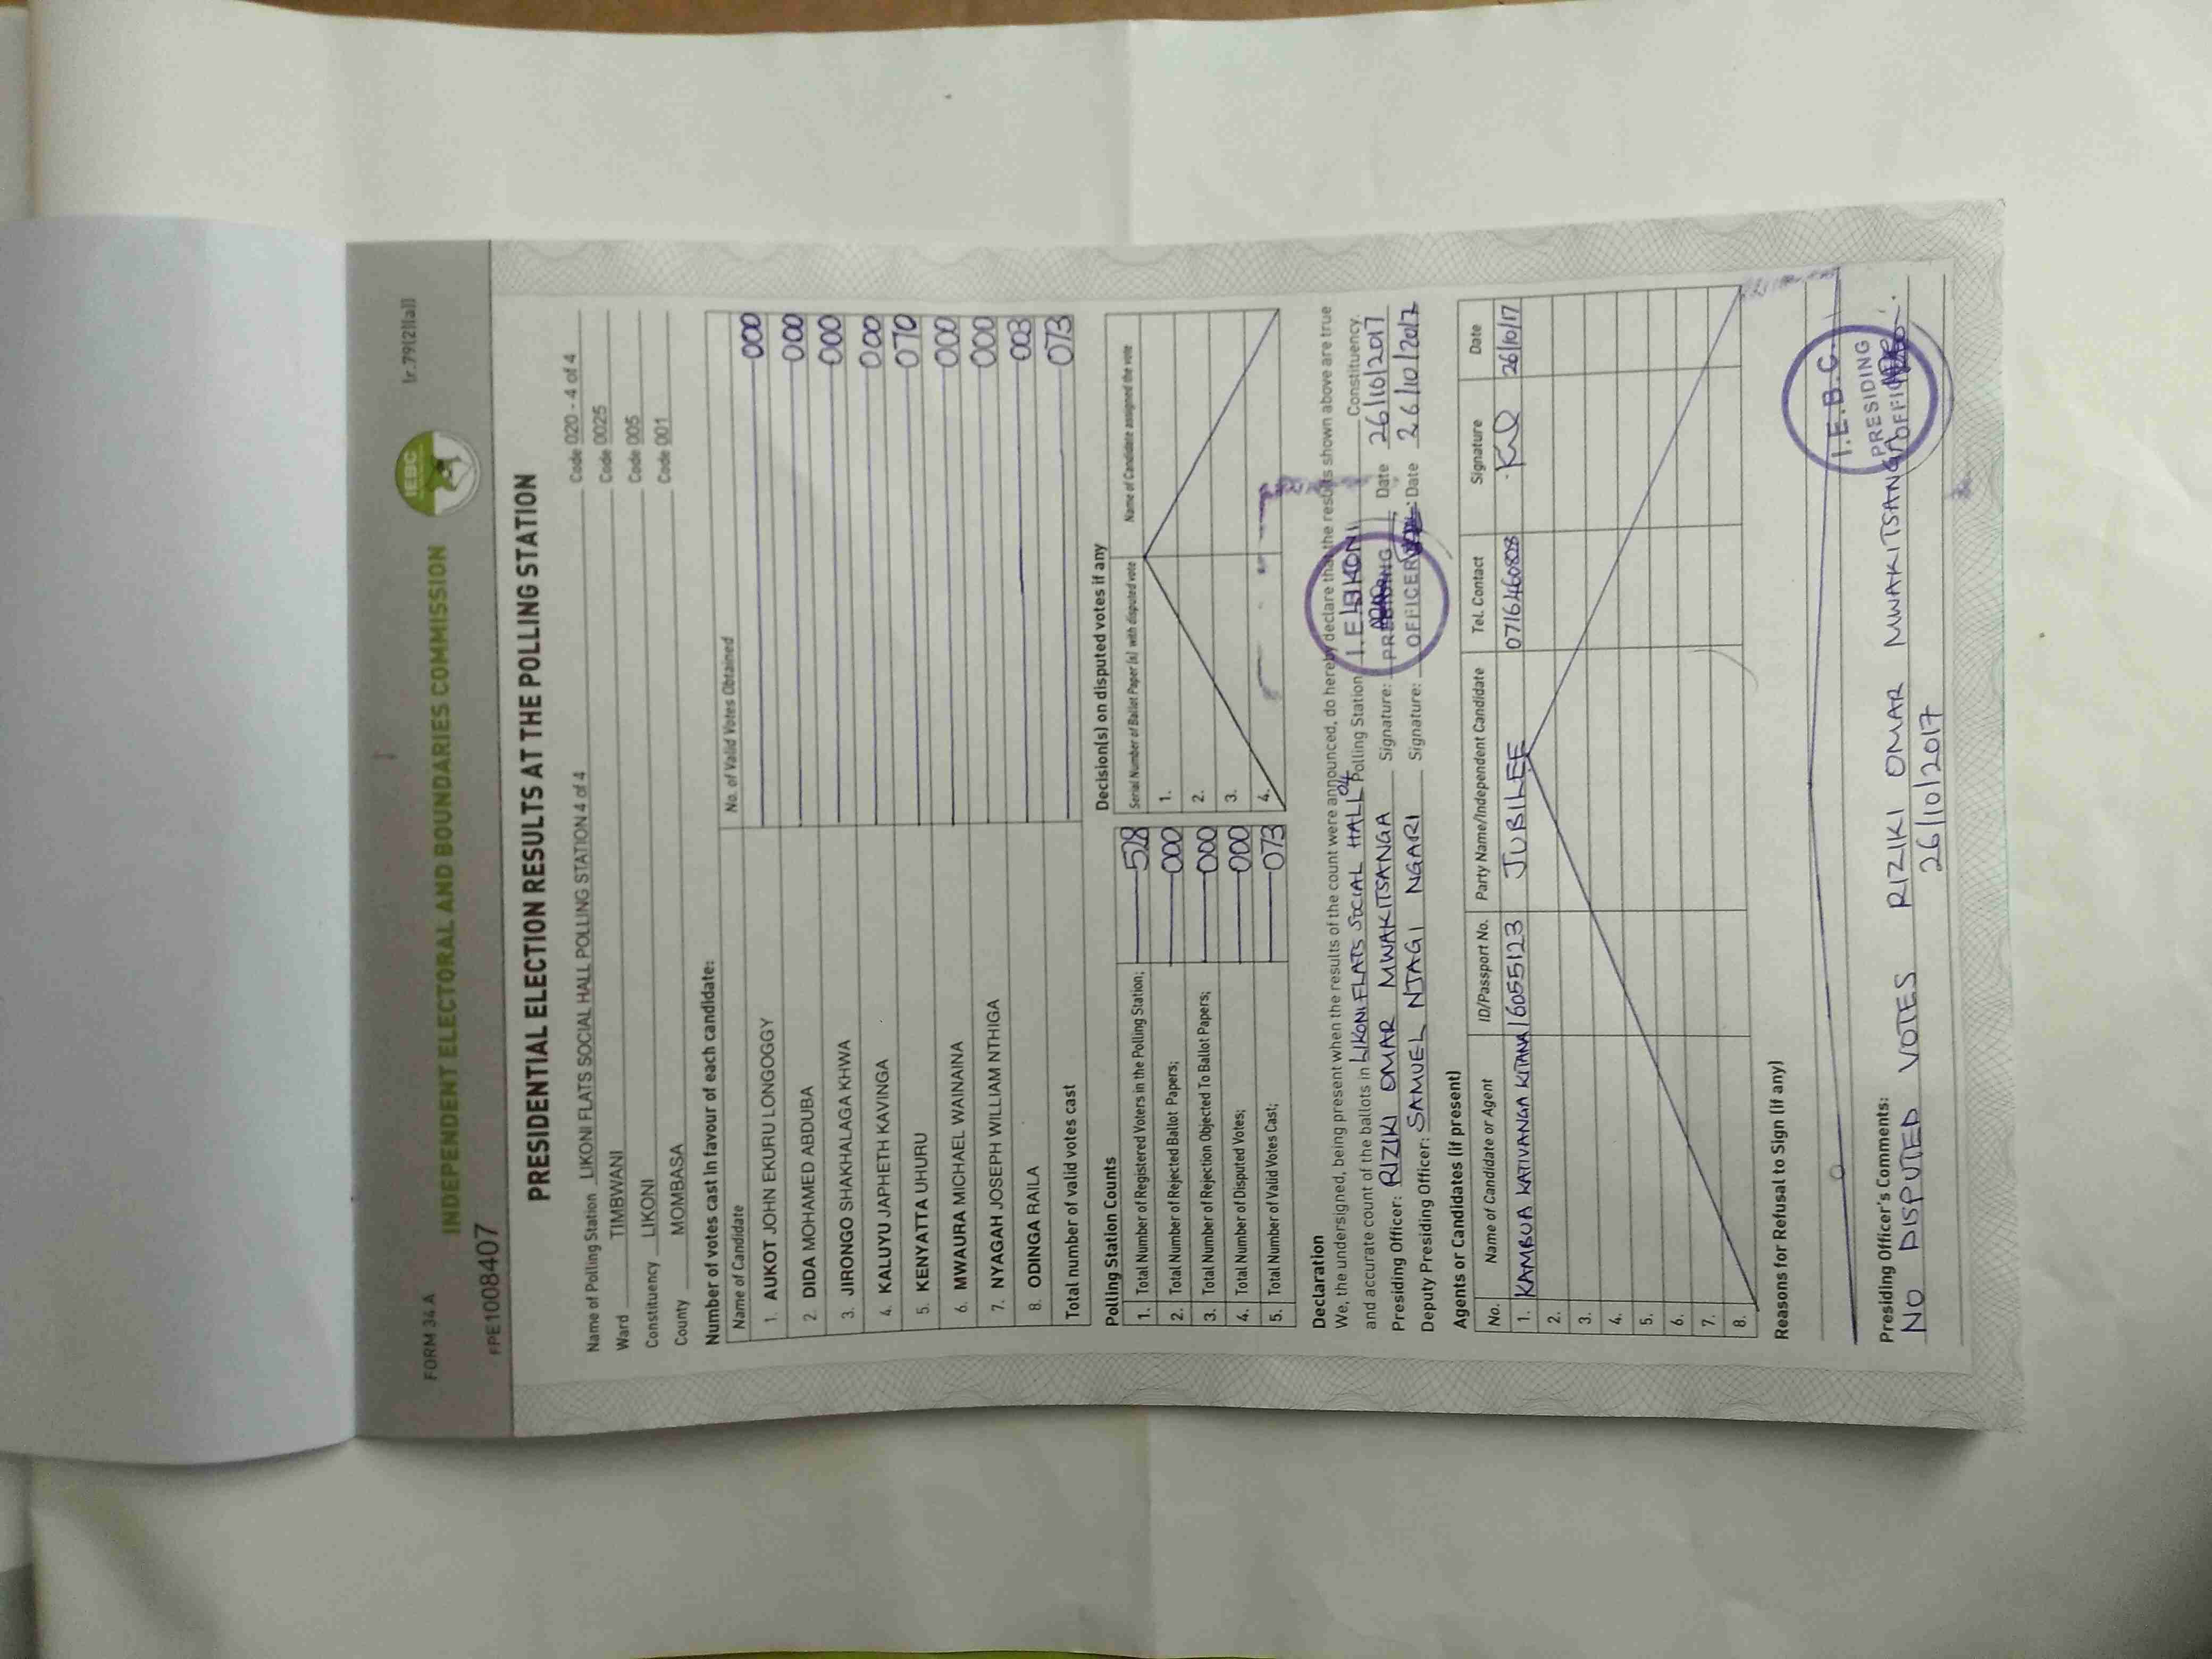 FORM 34 A
Ir.79(2)(a)]
IEBC
INDEPENDENT ELECTORAL AND BOUNDARIES COMMISSION
FPE1008407
PRESIDENTIAL ELECTION RESULTS AT THE POLLING STATION
Name of Polling Station LIKONI FLATS SOCIAL HALL POLLING STATION 4 of 4 Code 020 - 4 of 4
Ward TIMBWANI Code 0025
Constituency LIKONI Code 005
County MOMBASA Code 001
Number of votes cast in favour of each candidate:
Name of Candidate No. of Valid Votes Obtained
1. AUKOT JOHN EKURU LONGOGGY 000
2. DIDA MOHAMED ABDUBA 000
3. JIRONGO SHAKHALAGA KHWA 000
4. KALUYU JAPHETH KAVINGA 000
5. KENYATTA UHURU 070
6. MWAURA MICHAEL WAINAINA 000
7. NYAGAH JOSEPH WILLIAM NTHIGA 000
8. ODINGA RAILA 003
Total number of valid votes cast 073
Polling Station Counts
1. Total Number of Registered Voters in the Polling Station; 528
2. Total Number of Rejected Ballot Papers; 000
3. Total Number of Rejection Objected To Ballot Papers; 000
4. Total Number of Disputed Votes; 000
5. Total Number of Valid Votes Cast; 073
Decision(s) on disputed votes if any
Serial Number of Ballot Paper (s) with disputed vote Name of Candidate assigned the vote
1.
2.
3.
4.
Declaration
We, the undersigned, being present when the results of the count were announced, do hereby declare that the results shown above are true
and accurate count of the ballots in LIKONI FLATS SOCIAL HALL 04 Polling Station LIKONI Constituency.
Presiding Officer: RIZIKI OMAR MWAKITSANGA Signature: Date 26/10/2017
Deputy Presiding Officer: SAMUEL NJAGI NGARI Signature: Date 26/10/2017
PRESIDING
OFFICER
Agents or Candidates (if present)
No. Name of Candidate or Agent ID/Passport No. Party Name/Independent Candidate Tel. Contact Signature Date
1. KAMBUA KATIVANGA KITANA 16055123 JUBILEE 0716460828 26/10/17
2.
3.
4.
5.
6.
7.
8.
Reasons for Refusal to Sign (if any)
I.E.B.C
PRESIDING
OFFICER
Presiding Officer's Comments:
NO DISPUTED VOTES RIZIKI OMAR MWAKITSANGA
26/10/2017